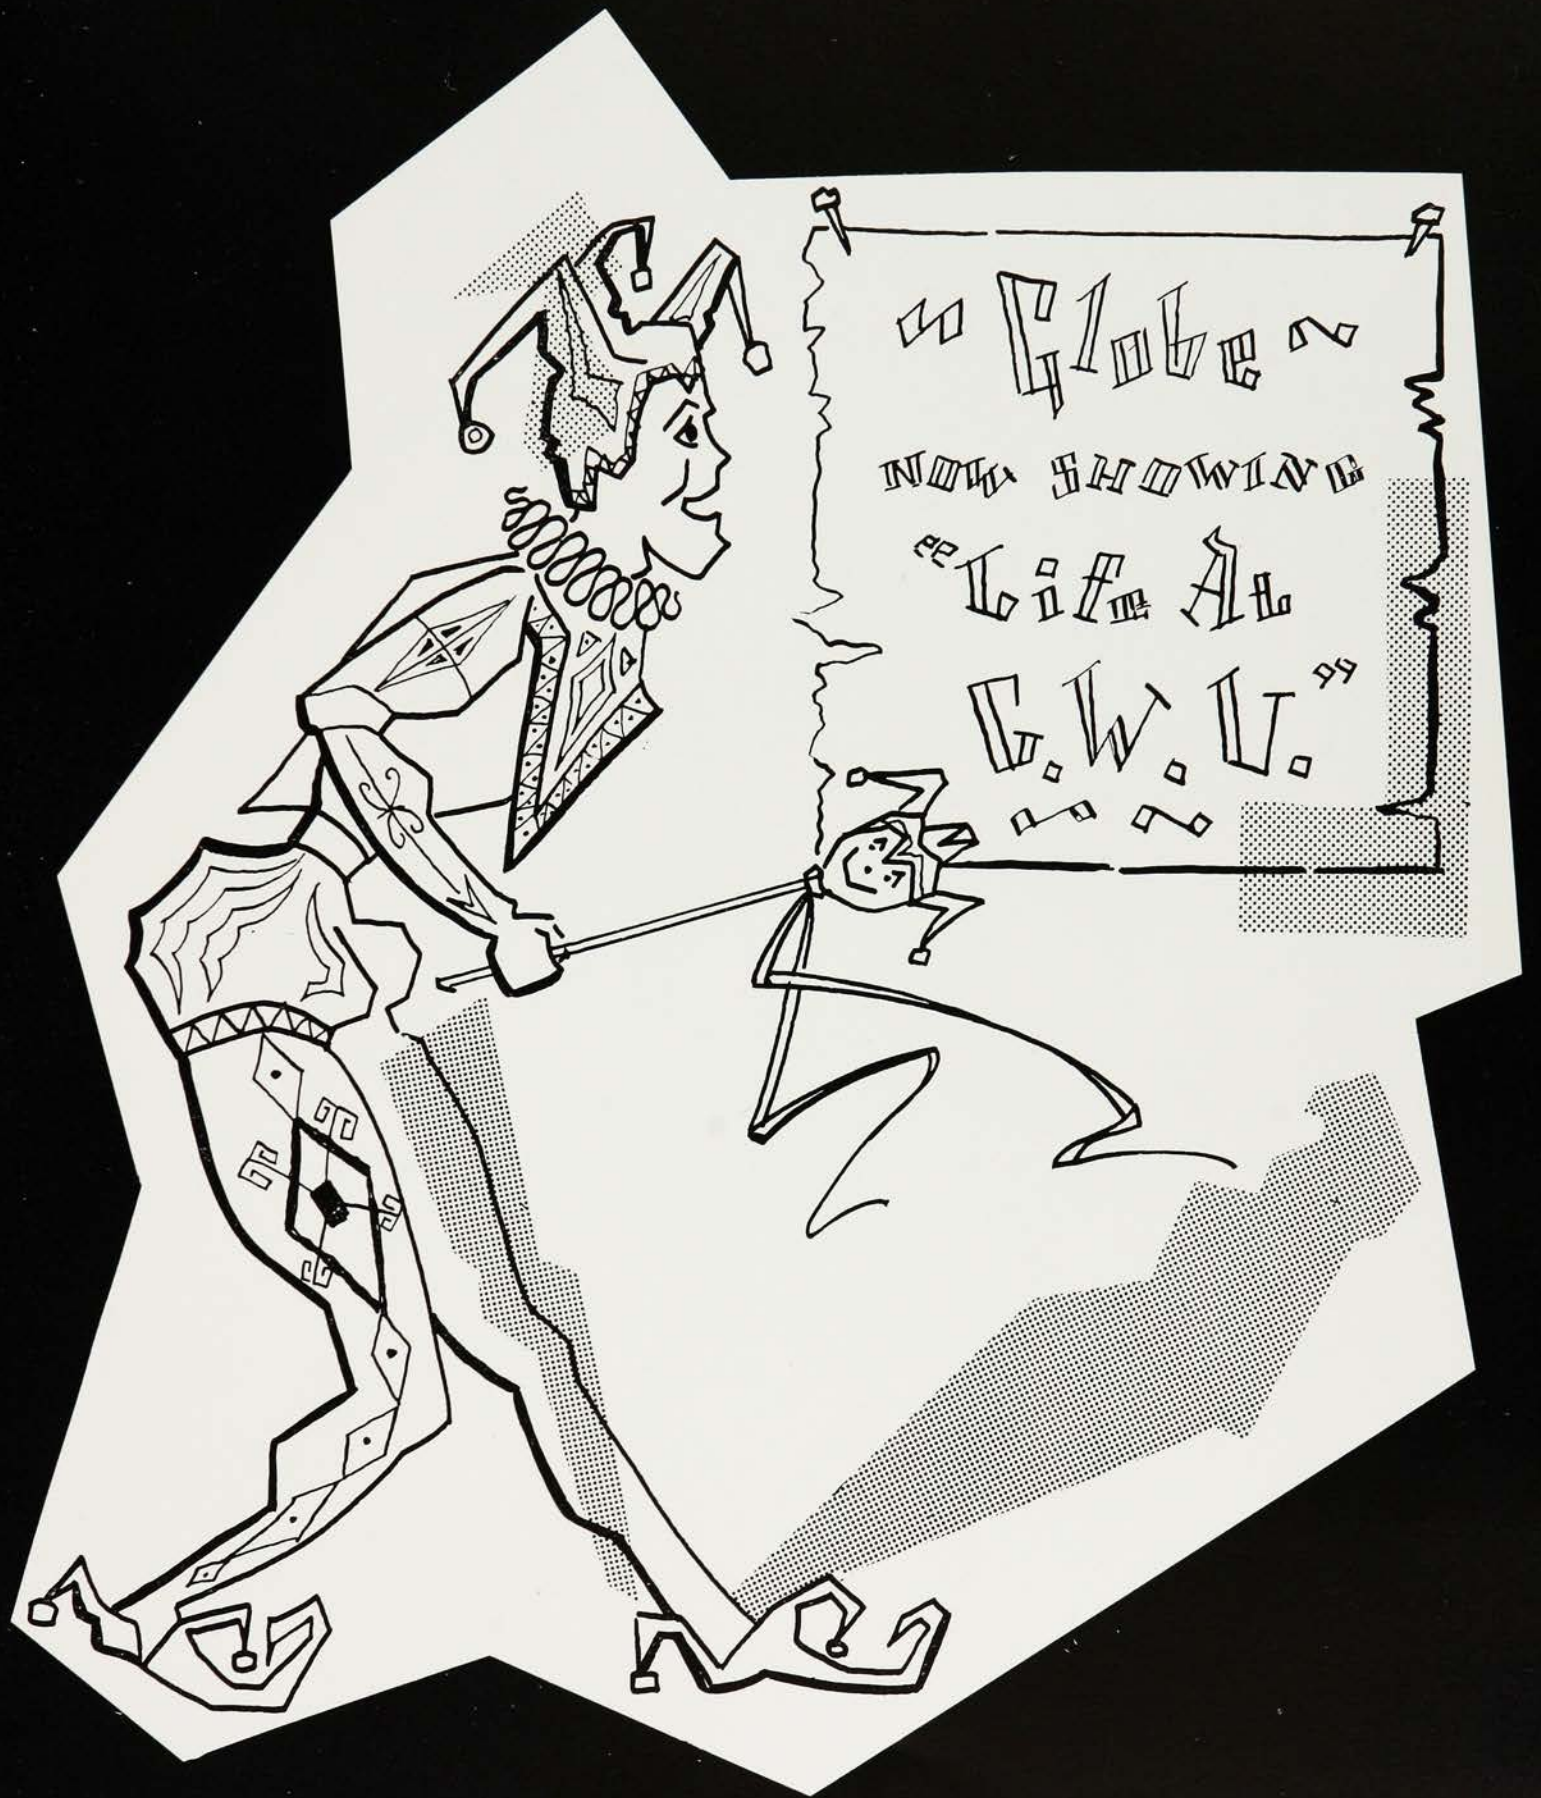 ~ Globe ~
NOW SHOWING
"Life At
G.W.U."
~ ~